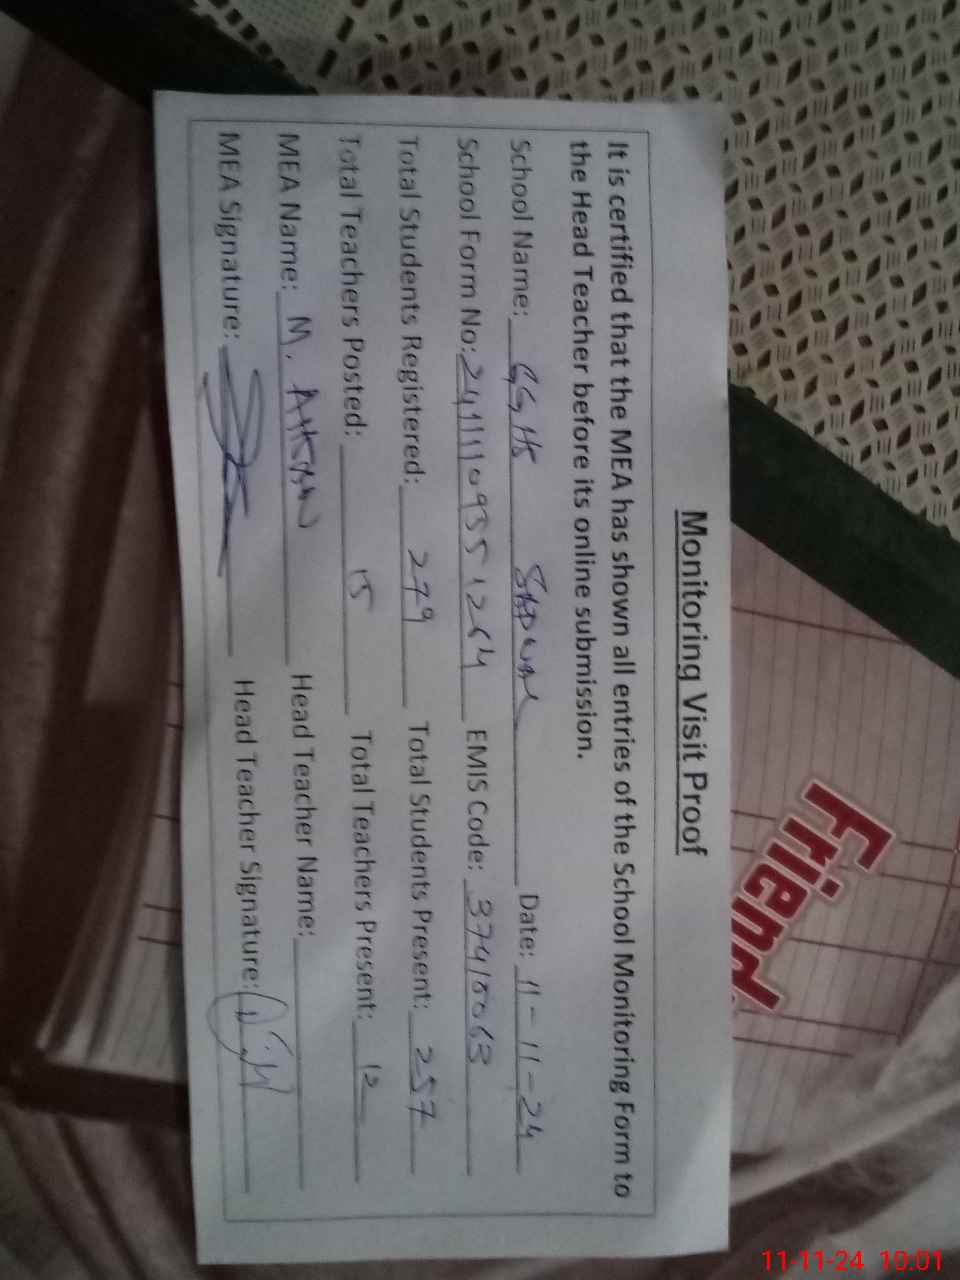 Monitoring Visit Proof
It is certified that the MEA has shown all entries of the School Monitoring Form to
the Head Teacher before its online submission.
School Name: GGHS Date: 11-11-24
School Form No: 24111109351264 EMIS Code: 37410068
Total Students Registered: 279 Total Students Present: 257
Total Teachers Posted: 15 Total Teachers Present: 12
MEA Name: M. AHSAN Head Teacher Name:
MEA Signature: Head Teacher Signature:
Friend
11-11-24 10:01